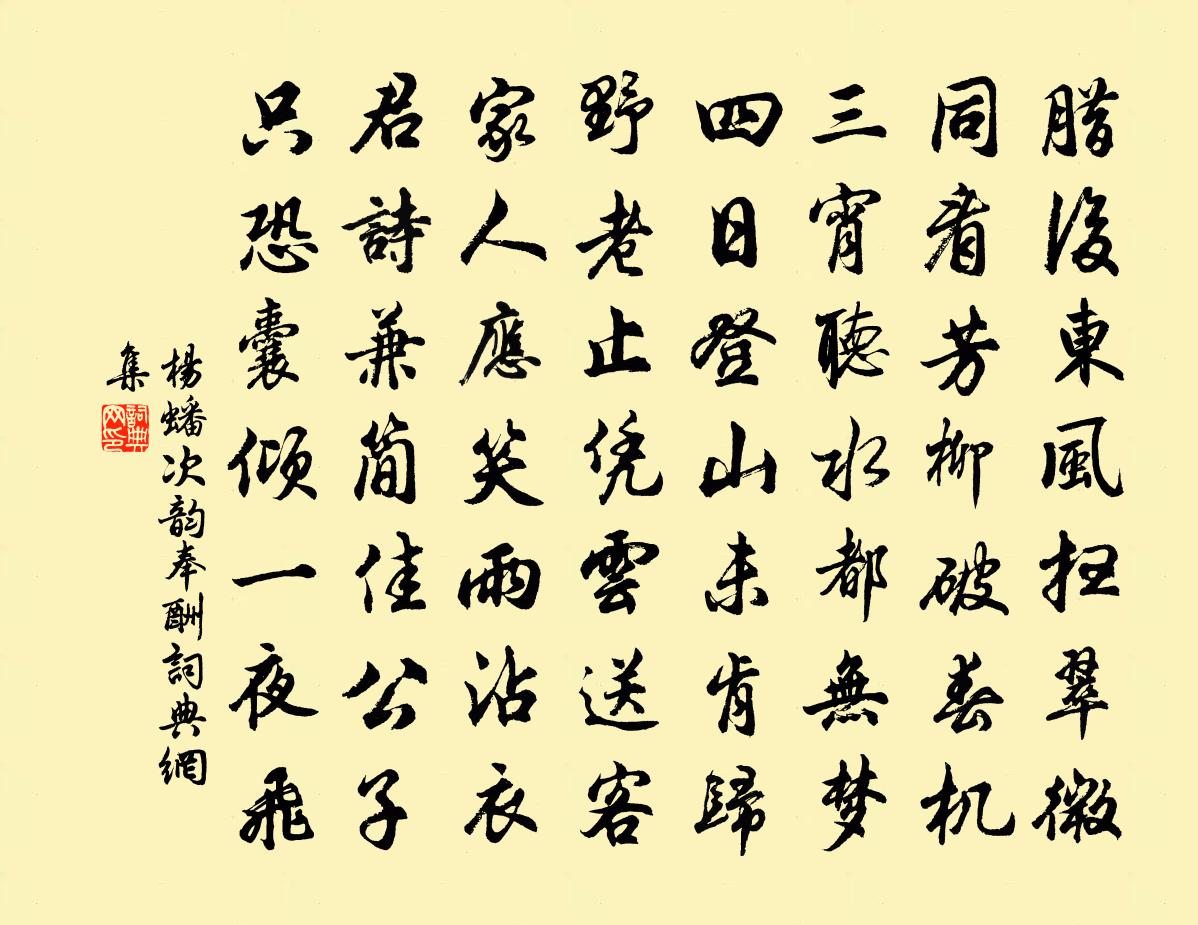 腊後東風扫翠微
同看芳柳破春机
三宵聽水都無梦
四日登山未肯歸
野老止凭雲送客
家人應笑雨沾衣
君詩兼简佳公子
只恐囊倾一夜飛
楊蟠次韵奉酬詞典網
集
詞典
网印